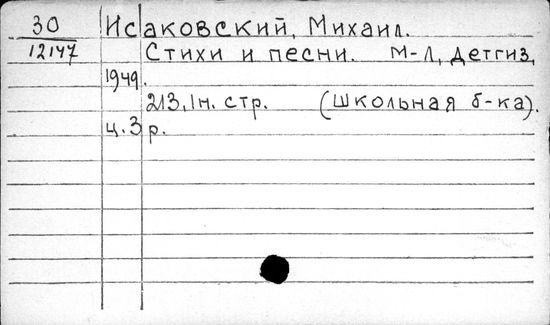 30 Исаковский, Михаил.
12147 Стихи и песни. М-Л, Детгиз,
1949.
213, 1н. стр. (Школьная б-ка).
ц. 3 р.